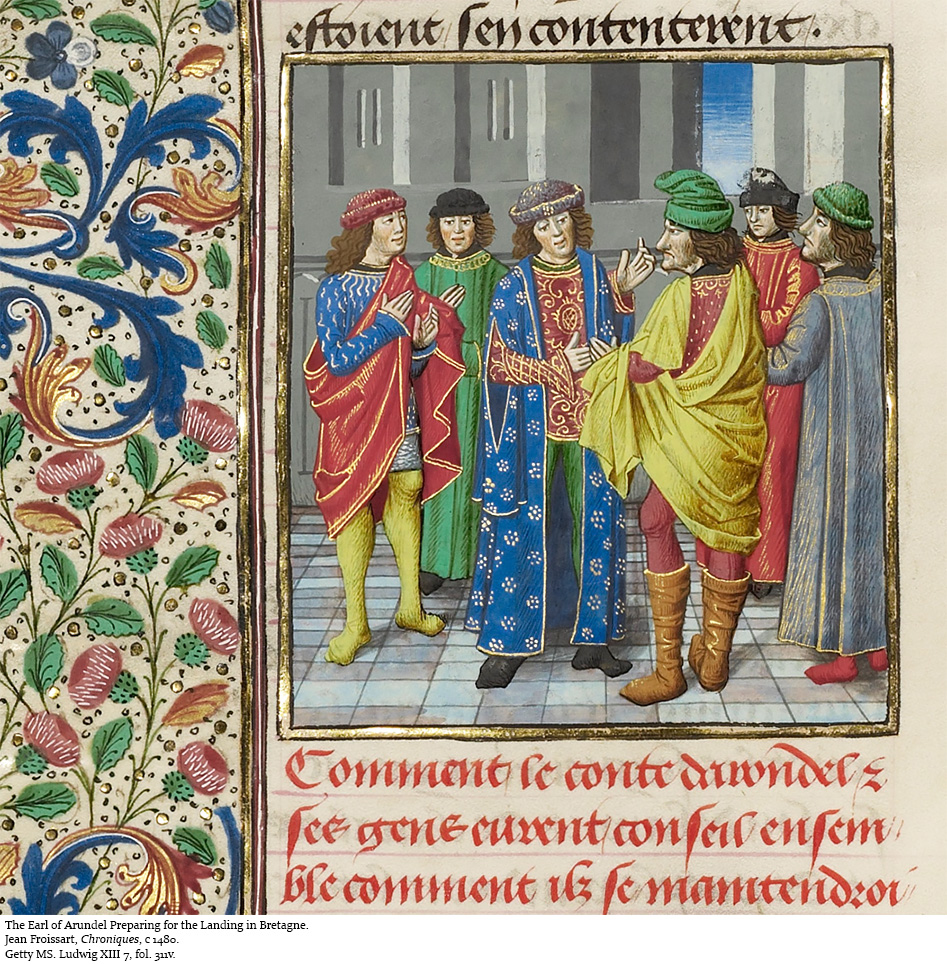 estoient sen contenterent .
Comment le conte darondel &
ses gens eurent conseil ensem
ble comment ilz se maintendroi
The Earl of Arundel Preparing for the Landing in Bretagne.
Jean Froissart, Chroniques, c 1480.
Getty MS. Ludwig XIII 7, fol. 311v.